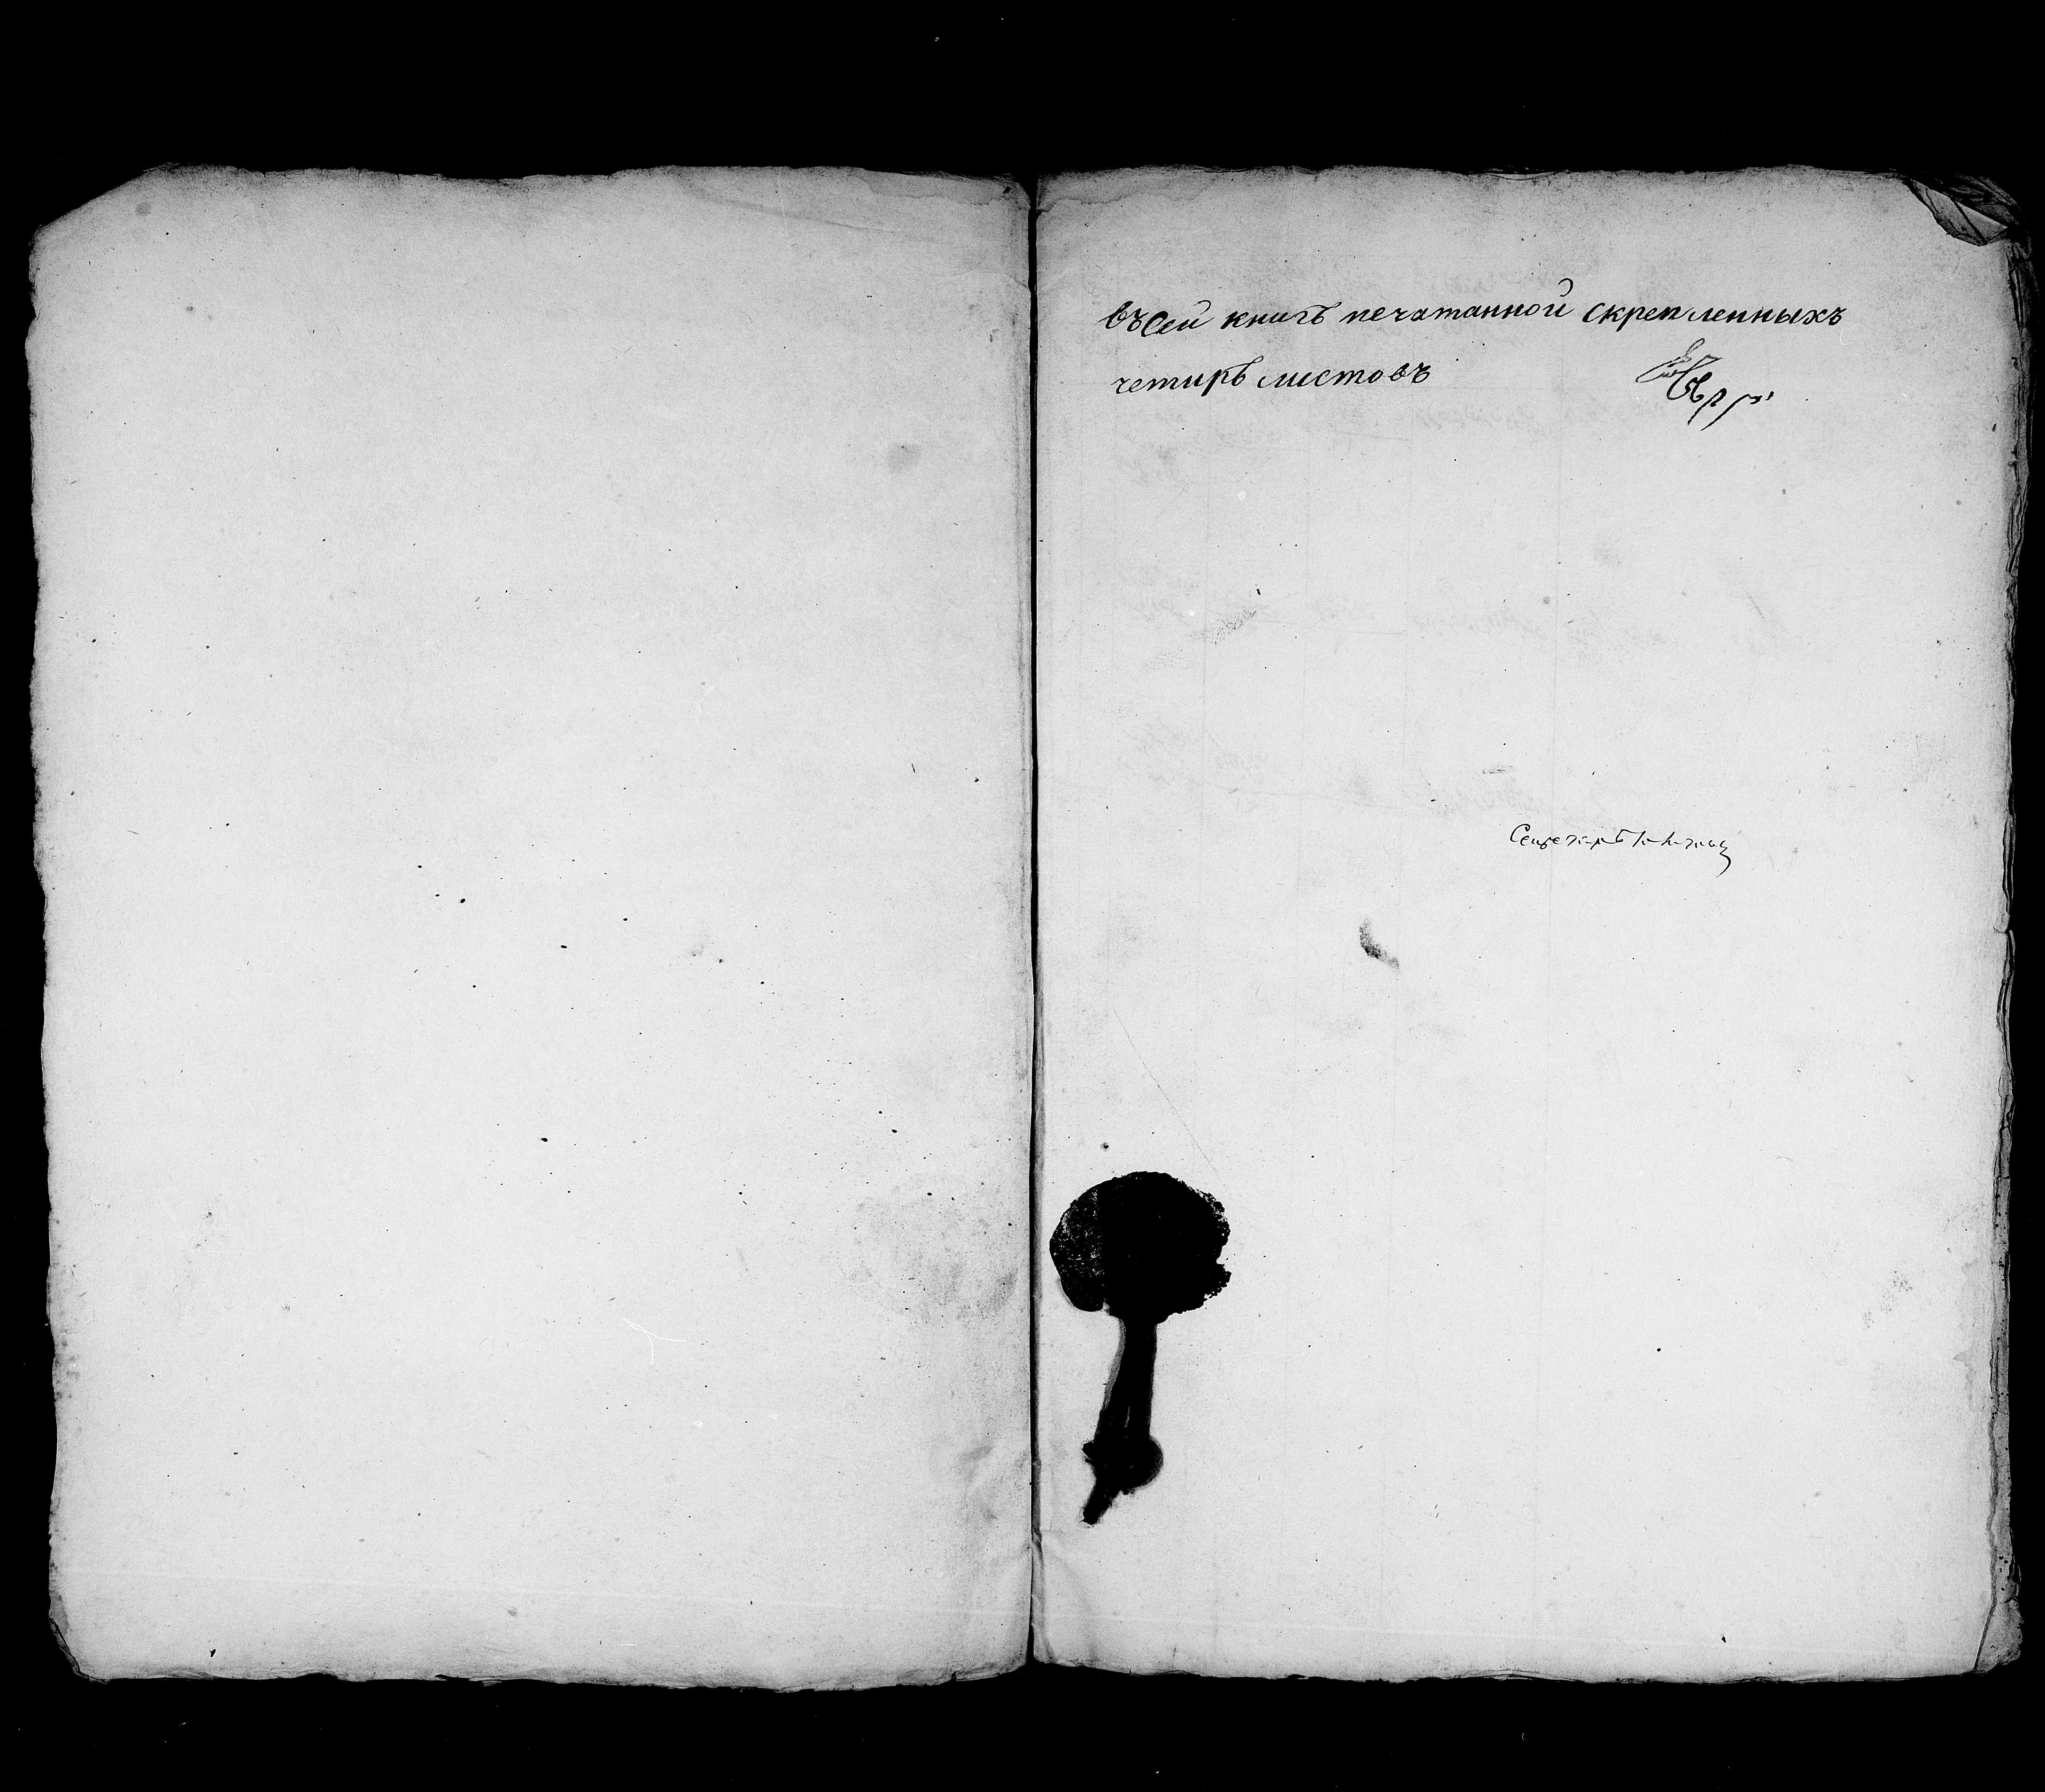 въ сей книгѣ печатанной скрепленныхъ
четирѣ листовъ
Секретарь